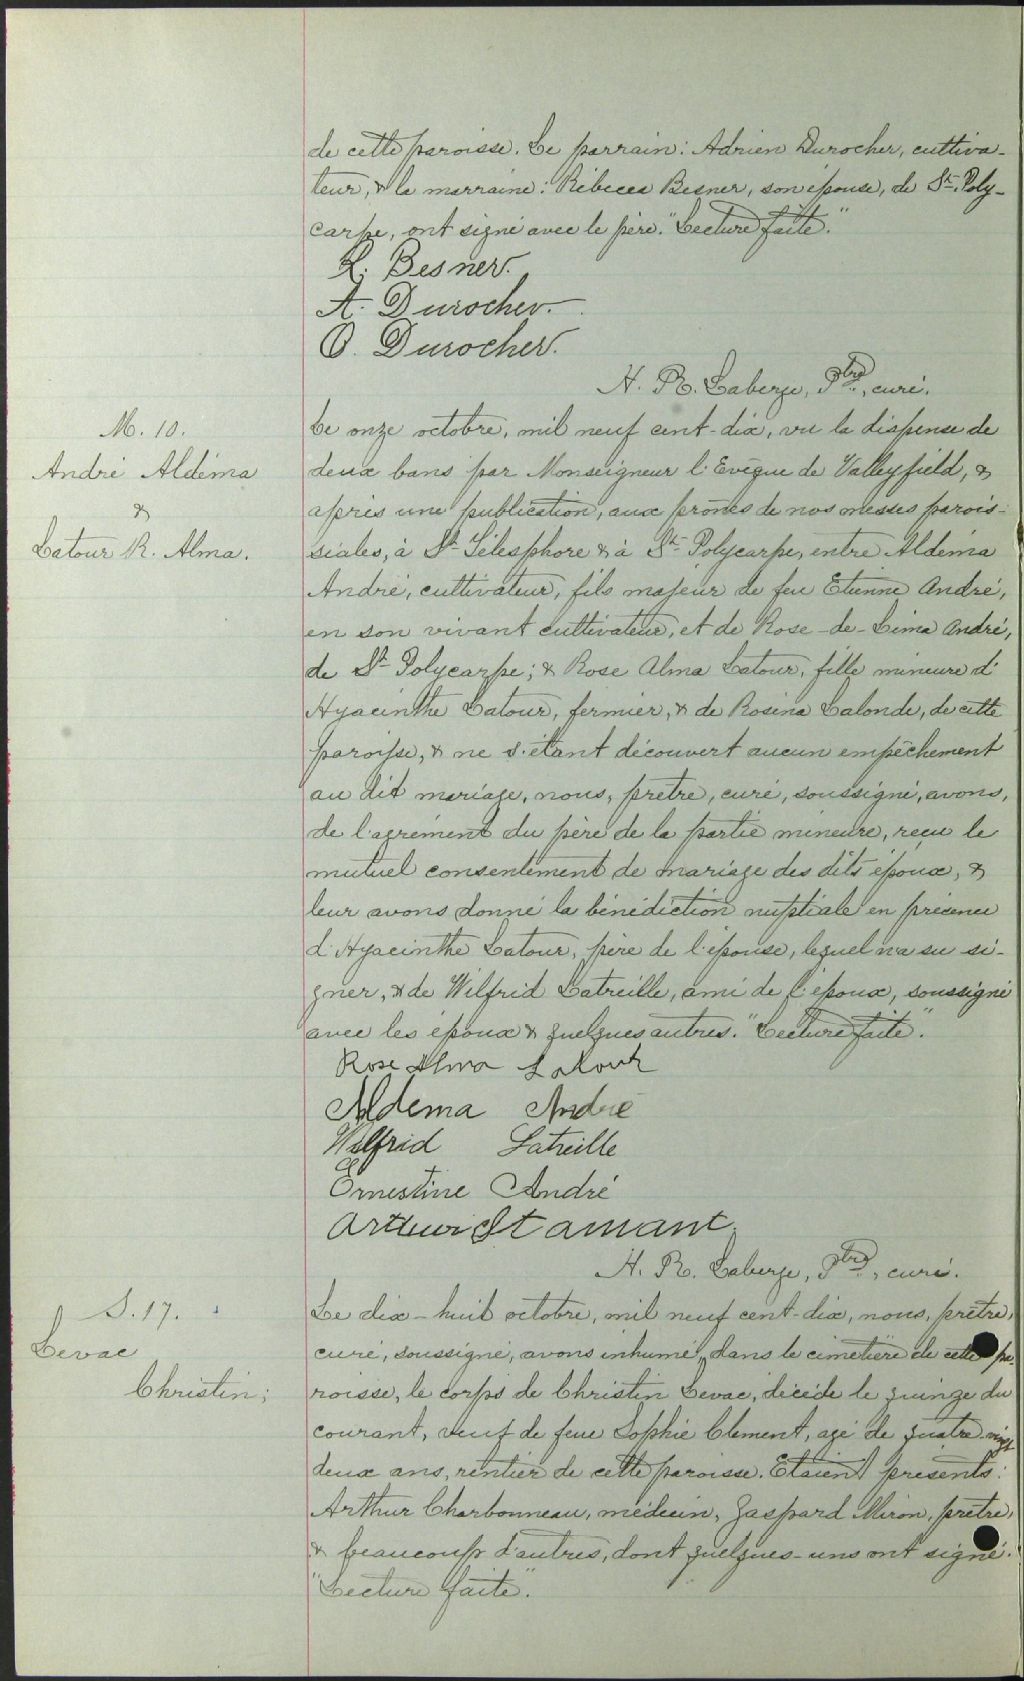 de cette paroisse. Le parrain: Adrien Durocher, cultiva-
teur, & la marraine: Rébecca Besner, son épouse, de St. Poly-
carpe, ont signé avec le père. "Lecture faite."
R. Besner.
A. Durocher.
O. Durocher.
H. R. Laberge, Ptre, curé.
M. 10.
André Aldéma
&
Latour R. Alma.
Le onze octobre, mil neuf cent-dix, vu la dispense de
deux bans par Monseigneur l'Evêque de Valleyfield, &
après une publication, aux prônes de nos messes parois-
siales, à St Télesphore & à St Polycarpe, entre Aldéma
André, cultivateur, fils majeur de feu Etienne André,
en son vivant cultivateur, et de Rose-de-Lima André,
de St Polycarpe; & Rose Alma Latour, fille mineure d'
Hyacinthe Latour, fermier, & de Rosina Lalonde, de cette
paroisse, & ne s'étant découvert aucun empêchement
au dit mariage, nous, prêtre, curé, soussigné, avons,
de l'agrément du père de la partie mineure, reçu le
mutuel consentement de mariage des dits époux, &
leur avons donné la bénédiction nuptiale en présence
d'Hyacinthe Latour, père de l'épouse, lequel n'a su si-
gner, & de Wilfrid Latreille, ami de l'époux, soussigné
avec les époux & quelques autres. "Lecture faite".
Rose Alma Latour
Aldema André
Wilfrid Latreille
Ernestine André
Arthur St amant.
H. R. Laberge, Ptre, curé.
S. 17.
Levac
Christin;
Le dix-huit octobre, mil neuf cent-dix, nous, prêtre,
curé, soussigné, avons inhumé, dans le cimetière de cette pa-
roisse, le corps de Christin Levac, décédé le quinze du
courant, veuf de feue Sophie Clement, agé de quatre vingt
deux ans, rentier de cette paroisse. Etaient présents:
Arthur Charbonneau, médecin, Gaspard Miron, prêtre,
& beaucoup d'autres, dont quelques-uns ont signé.
"Lecture faite".